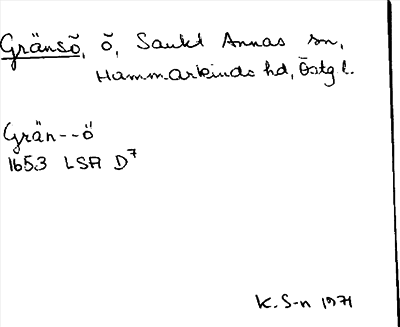 Gränsö, ö, Sankt Annas sn,
Hammarkinds hd, Östg.l.
Grän--ö
1653 LSA D7
K. S-n 1971